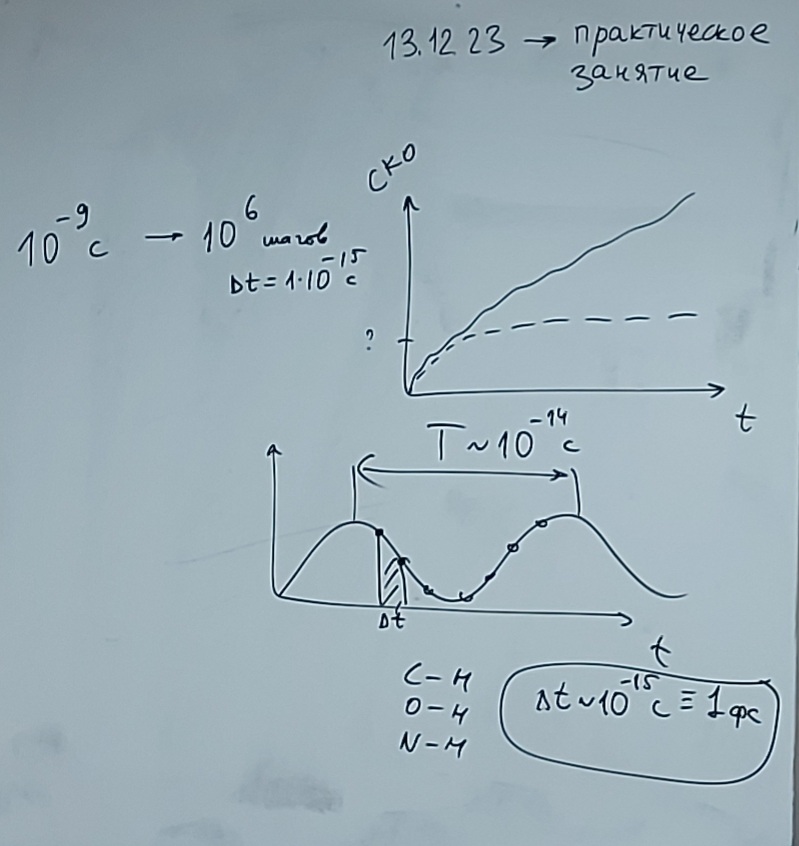 13.12 23 → практическое
занятие
СКО
10⁻⁹ с → 10⁶ шагов
Δt = 1·10⁻¹⁵ с
?
t
T ~ 10⁻¹⁴ с
Δt
t
C – H
O – H
N – H
Δt ~ 10⁻¹⁵ с ≡ 1 фс